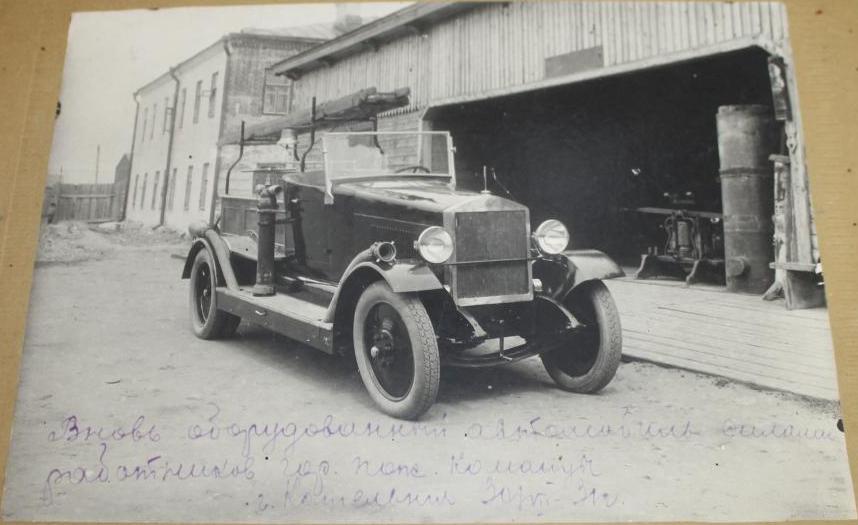 Вновь оборудованный автомобиль силами
работников гор. пож. команды
г. Котельнич 30/VI-31г.